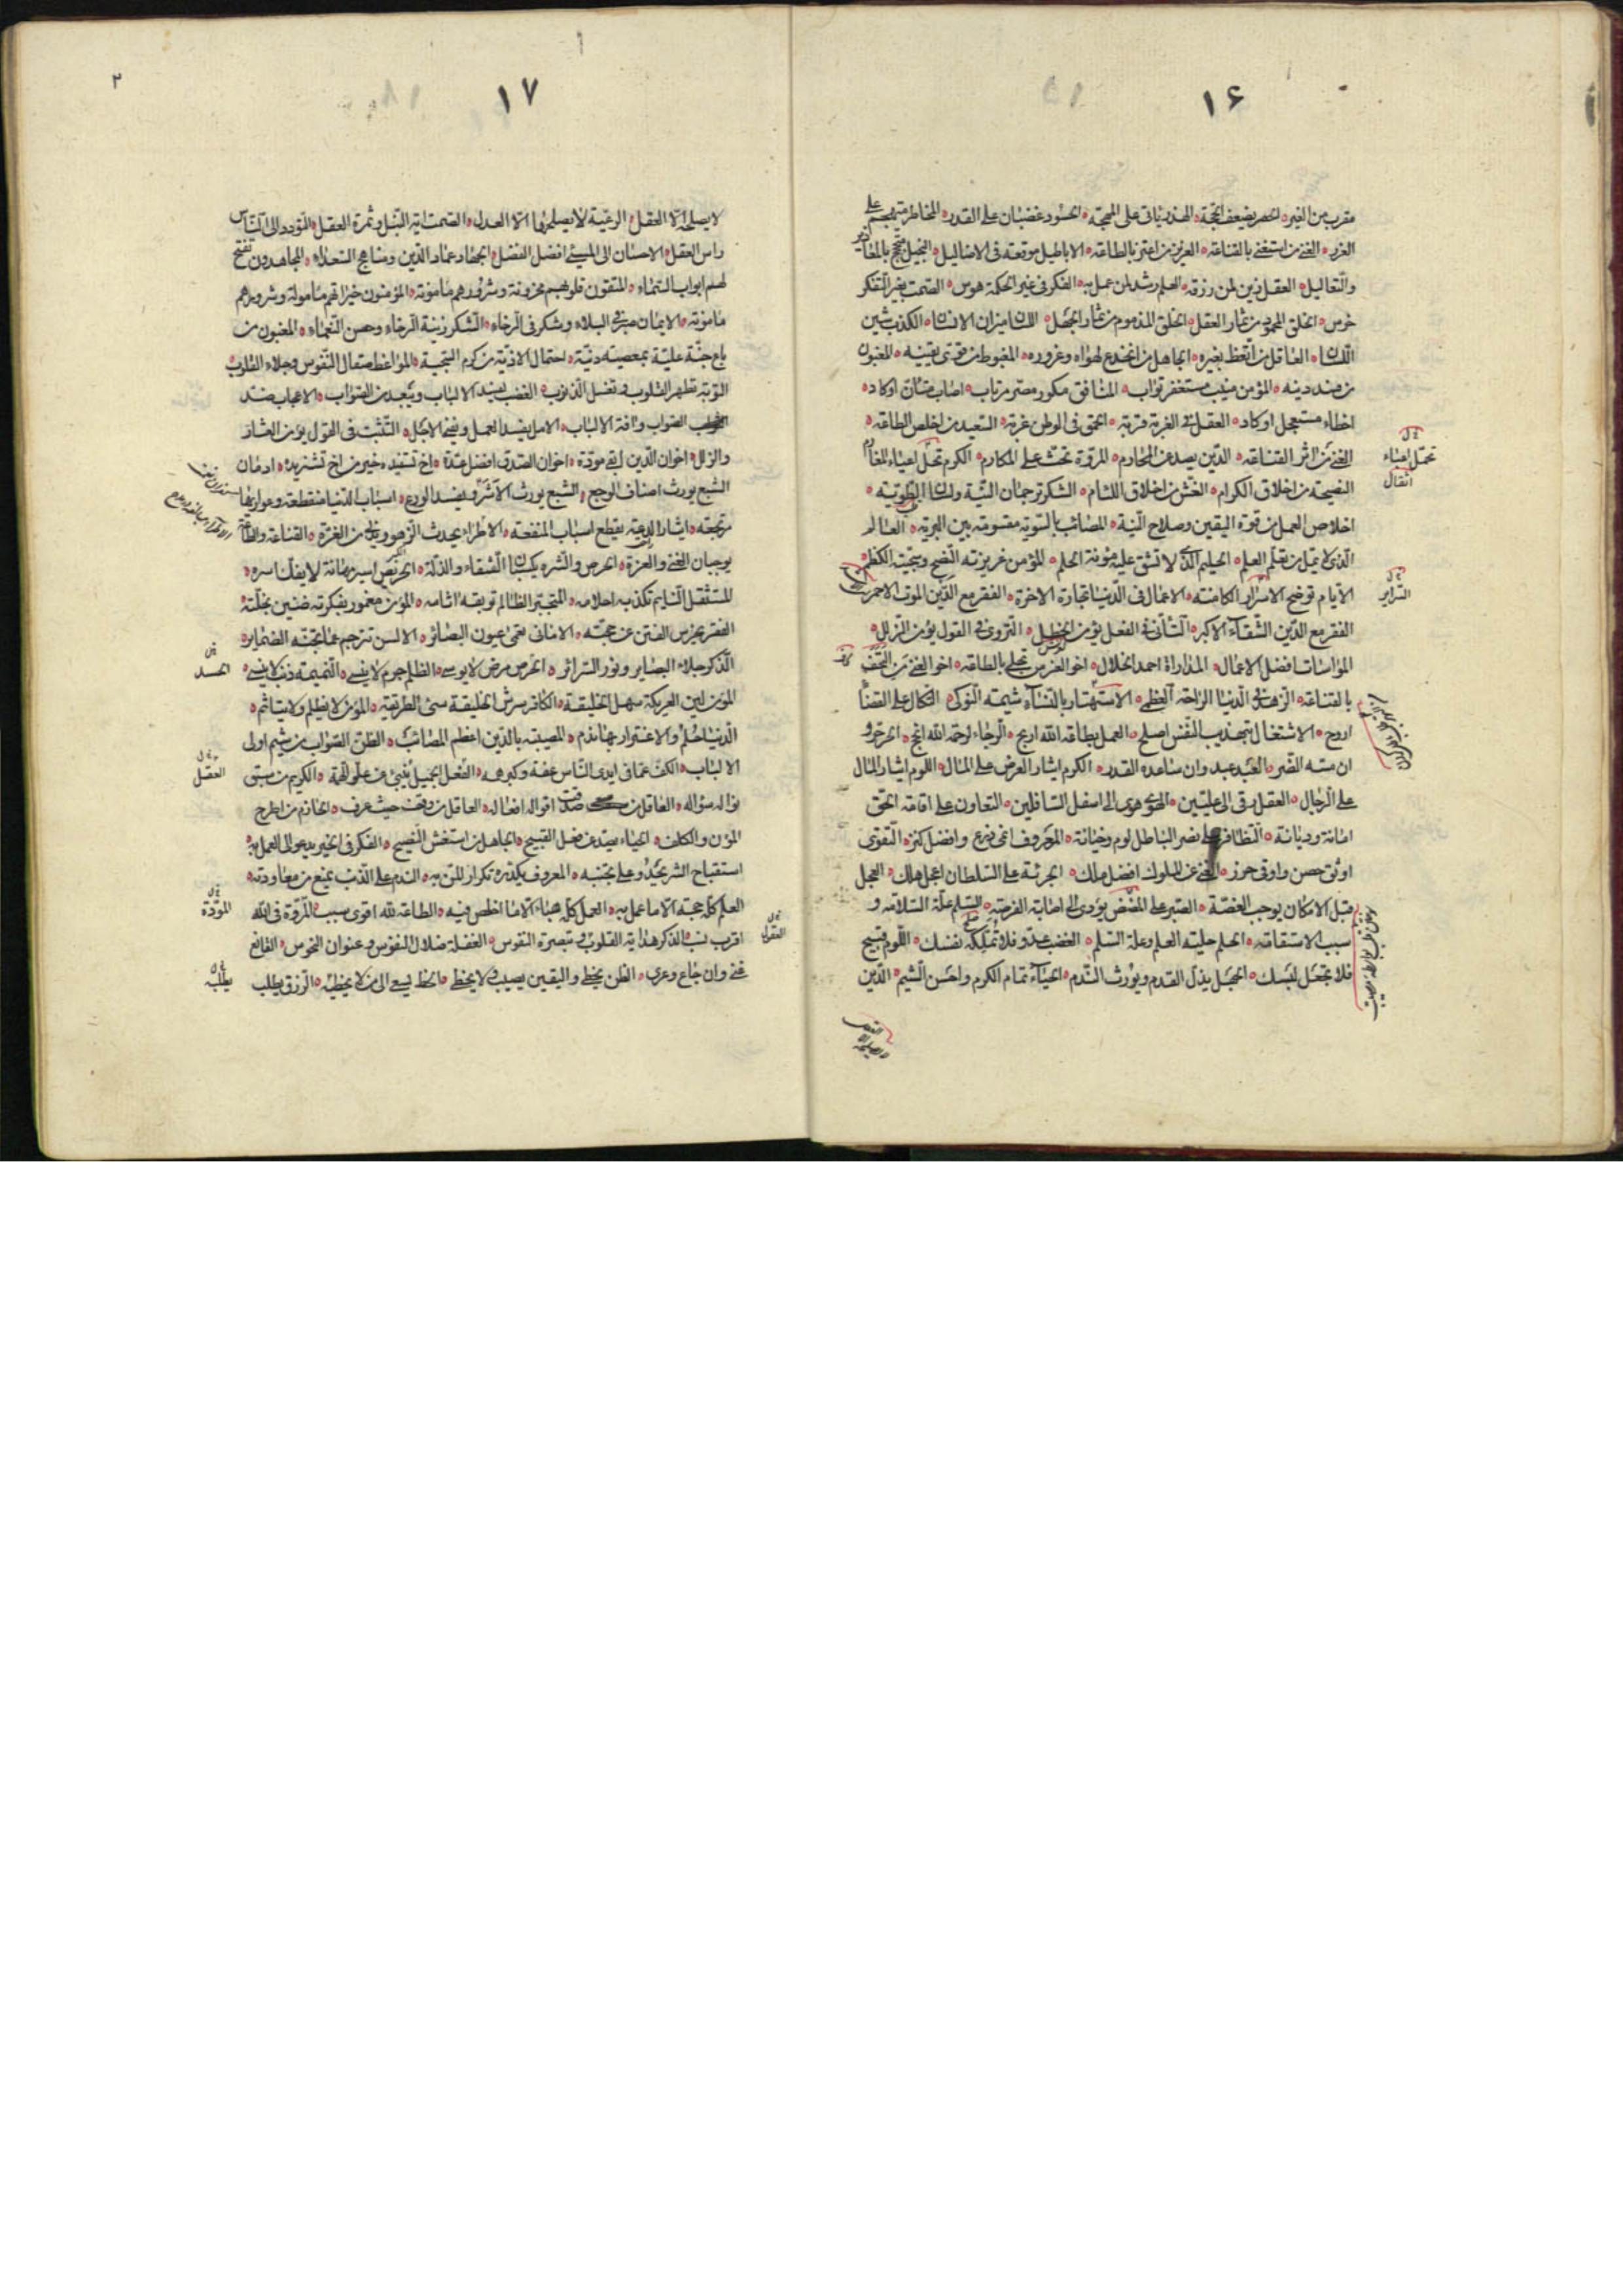 ۱۶
مقرب من الغير الحصر يضعف الحجة الهذر ياتى على المهجة الحسود غضبان على القدر المخاطر متهجم على
الغرر الغنى من استغنى بالقناعة العزيز من اعتز بالطاعة الاباطيل موقعة فى الاضاليل البخيل متحجج بالمعاذير
والتعاليل العقل زين لمن رزقه العلم رشد لمن عمل به الفكر فى غير الحكمة هوس الصمت بغير التفكر
خرس الخلق المحمود من ثمار العقل الخلق المذموم من ثمار الجهل اللسان ميزان الانسان الكذب شين
اللسان العاقل من اتعظ بغيره الجاهل من انخدع لهواه وغروره المغبوط من قوى يقينه المغبون
من فسد دينه المؤمن منيب مستغفر تواب المنافق مكور مضر مرتاب اصاب متأن او كاد
اخطاء مستعجل او كاد العقل فى الغربة قربة الحمق فى الوطن غربة السعيد من اخلص الطاعة
الغنى من اثر القناعة الدين يصد عن المحارم المروة تحث على المكارم الكرم تحمل اعباء المغارم
النصيحة من اخلاق الكرام الغش من اخلاق اللئام الشكر ترجمان النية ولسان الطوية
اخلاص العمل من قوة اليقين وصلاح النية المصائب بالسوية مقسومة بين البرية العالم
الذى لا يمل من تعلم العلم الحليم الذى لا تشق عليه مؤنة الحلم المؤمن غريزته النصح وسجيته الكظم
الايام توضح الاسرار الكامنة الاعمال فى الدنيا تجارة الاخرة الفقر مع الدين الموت الاحمر
الفقر مع الدين الشقاء الاكبر التأنى فى الفعل يؤمن الخطل التروى فى القول يؤمن الزلل
المواسات افضل الاعمال المداراة احمد الخلال اخو العز من تحلى بالطاعة اخو الغنى من التحف
بالقناعة الزهد فى الدنيا الراحة العظمى الاستهتار بالنساء شيمة النوكى الاتكال على القضاء
اروح الاشتغال بتهذيب النفس اصلح العمل بطاعة الله اربح الرجاء لرحمة الله انجح الحر حر و
ان مسه الضر العبد عبد وان ساعده القدر الكرم ايثار العرض على المال اللوم ايثار المال
على الرجال العقل يرقى الى عليين الهوى هوى الى اسفل السافلين التعاون على اقامة الحق
امانة وديانة التظافر على نصر الباطل لوم وخيانة المعروف انمى زرع وافضل كنز التقوى
اوثق حصن واوقى حرز الغنى عن الملوك افضل ملك الجرئة على السلطان اعجل هلك العجل
قبل الامكان يوجب الغصة الصبر على المضض يؤدى الى اصابة الفرصة السلم علة السلامة و
سبب الاستقامة الحلم حلية العلم وعلة السلم الغضب عدو فلا تملكه نفسك اللوم قبيح
فلا تجعل لبسك الجهل يذل القدم ويورث الندم الحياء تمام الكرم واحسن الشيم الدين
تحمل اعباء
اثقال
السراير
۱۷
۲
لا يصلحه الا العقل الرعية لا يصلحها الا العدل الصمت اية النبل وثمرة العقل التودد الى الناس
راس العقل الاحسان الى المسيئ افضل الفضل الجهاد عماد الدين ومنهاج السعداء المجاهدون تفتح
لهم ابواب السماء المتقون قلوبهم محزونة وشرورهم مأمونة المؤمنون خيراتهم مأمولة وشرورهم
مأمونة الايمان صبر فى البلاء وشكر فى الرخاء الشكر زينة الرخاء وحصن النعماء المغبون من
باع جنة علية بمعصية دنية احتمال الاذية من كرم السجية المواعظ صقال النفوس وجلاء القلوب
التوبة تطهر القلوب وتغسل الذنوب الغضب يفسد الالباب ويبعد من الصواب الاعجاب ضد
الصواب وافة الالباب الامل يفسد العمل ويفنى الاجل التثبت فى القول يؤمن العثار
والزلل اخوان الدين ابقى مودة اخوان الصدق افضل عدة اخ تستفيده خير من اخ تستزيده ادمان
الشبع يورث اصناف الوجع الشبع يورث الاشر ويفسد الورع اسباب الدنيا منقطعة وعواريها
مرتجعة ايثار الدعة يقطع اسباب المنفعة الاطراء يحدث الزهو ويدنى من الغرة القناعة والطاعة
يوجبان الغنى والعزة الحرص والشره يكسبان الشقاء والذلة الحريص اسير مهانة لا يفك اسره
المستثقل النائم تكذبه احلامه المتجبر الظالم توبقه اثامه المؤمن مغمور بفكرته ضنين بخلته
الفقر يخرس الفطن عن حجته الامانى تعمى عيون البصائر الالسن تترجم عما تجنه الضماير
الذكر جلاء البصاير ونور السرائر الحرص مرض لا يوسى الظلم جرم لا ينسى النميمة ذنب لا ينسى
المؤمن لين العريكة سهل الخليقة الكافر شرس الخليقة سيئ الطريقة المؤمن لا يظلم ولا يتأثم
الدنيا حلم والاغترار بها ندم المصيبة بالدين اعظم المصائب الظن الصواب من شيم اولى
الالباب الكف عما فى ايدى الناس عفة وكبر همة الفعل الجميل ينبئ عن علو الهمة الكريم من سبق
نواله سؤاله العاقل من صدق اقواله افعاله العاقل من وقف حيث عرف الحازم من اطرح
المؤن والكلف الحياء يصد عن فعل القبيح الجاهل من استغش النصيح الفكر فى الخير يدعو الى العمل به
استقباح الشر يحدو على تجنبه المعروف يكدره تكرار المن به الندم على الذنب يمنع من معاودته
العلم كله حجة الا ما عمل به العمل كله هباء الا ما اخلص فيه الطاعة لله اقوى سبب المروة فى الله
اقرب نسب الذكر هداية القلوب وتبصرة النفوس الغفلة ضلال النفوس وعنوان النحوس القانع
غنى وان جاع وعرى الظن يخطى واليقين يصيب ولا يخطى الحظ يسعى الى من لا يخطبه الرزق يطلب
الحسد
العقل
المودة
العقول
يطلبه